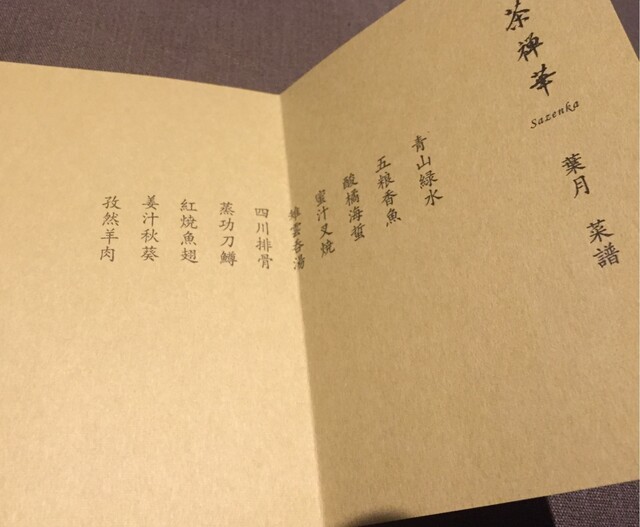 茶禅華
Sazenka
葉月 菜譜
青山緑水
五粮香魚
酸橘海蜇
蜜汁叉焼
雉雲呑湯
四川排骨
蒸功刀鱒
紅焼魚翅
姜汁秋葵
孜然羊肉